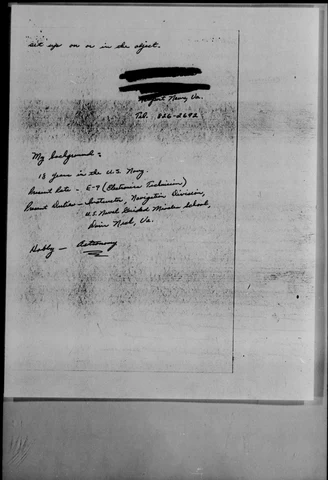 set up on or in the object.
Newport News, Va.
Tel. 826-2692
My background:
18 years in the U.S. Navy.
Present Rate - E-7 (Electronics Technician)
Present Duties - Instructor, Navigation Division,
U.S. Naval Guided Missiles School,
Dam Neck, Va.
Hobby - Astronomy